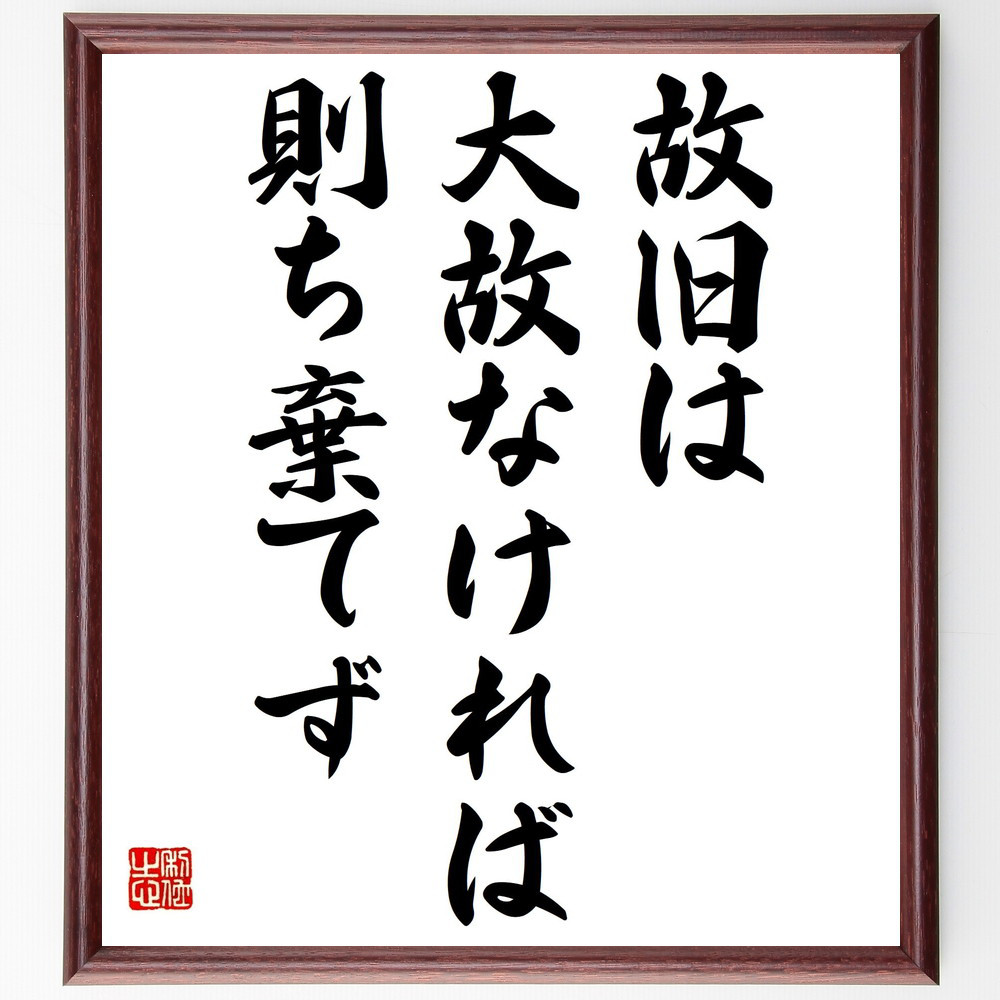 故旧は
大故なければ
則ち棄てず